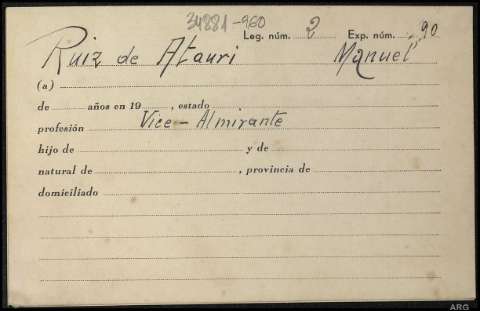 34881-960
Leg. núm. 2 Exp. núm. 90
Ruiz de Atauri Manuel
(a)
de años en 19 , estado
profesión Vice-Almirante
hijo de y de
natural de , provincia de
domiciliado
ARG